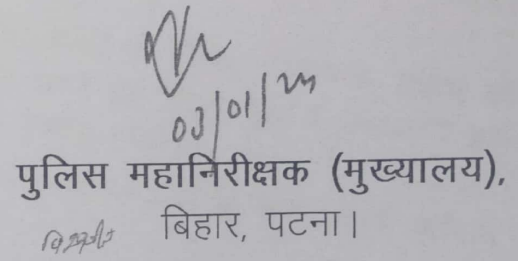 03/01/23
पुलिस महानिरीक्षक (मुख्यालय),
बिहार, पटना।